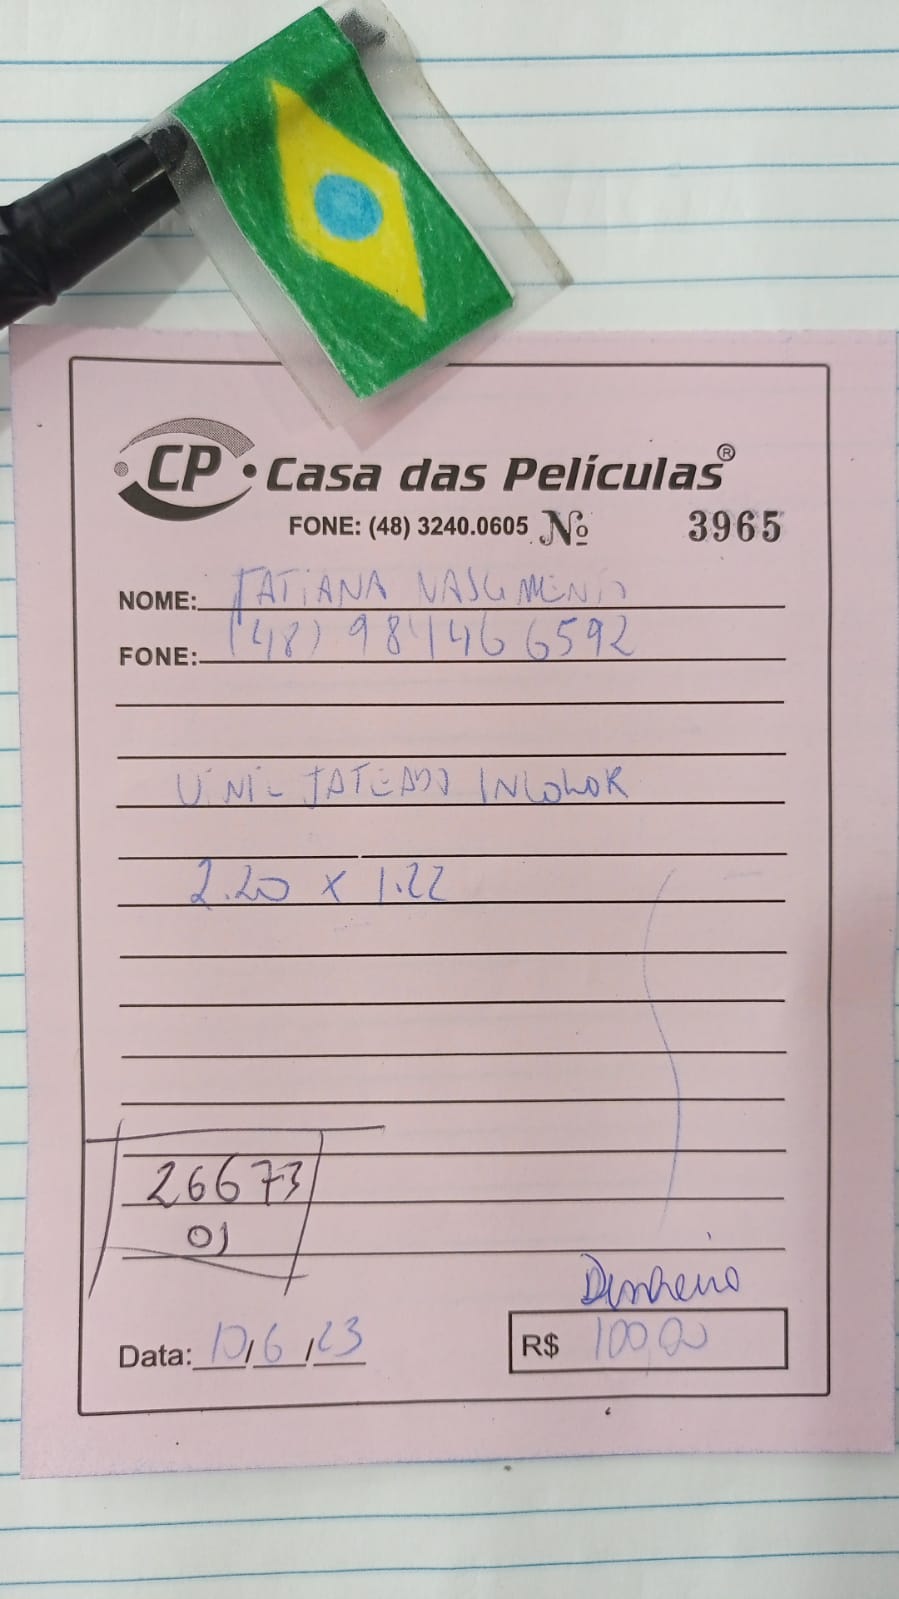 CP Casa das Películas®
FONE: (48) 3240.0605 Nº 3965
NOME: TATIANA NASCIMENTO
FONE: (48) 984466592
VINIL JATEADO INCOLOR
2.20 x 1.22
26673
01
Dinheiro
Data: 10/6/23 R$ 100,00